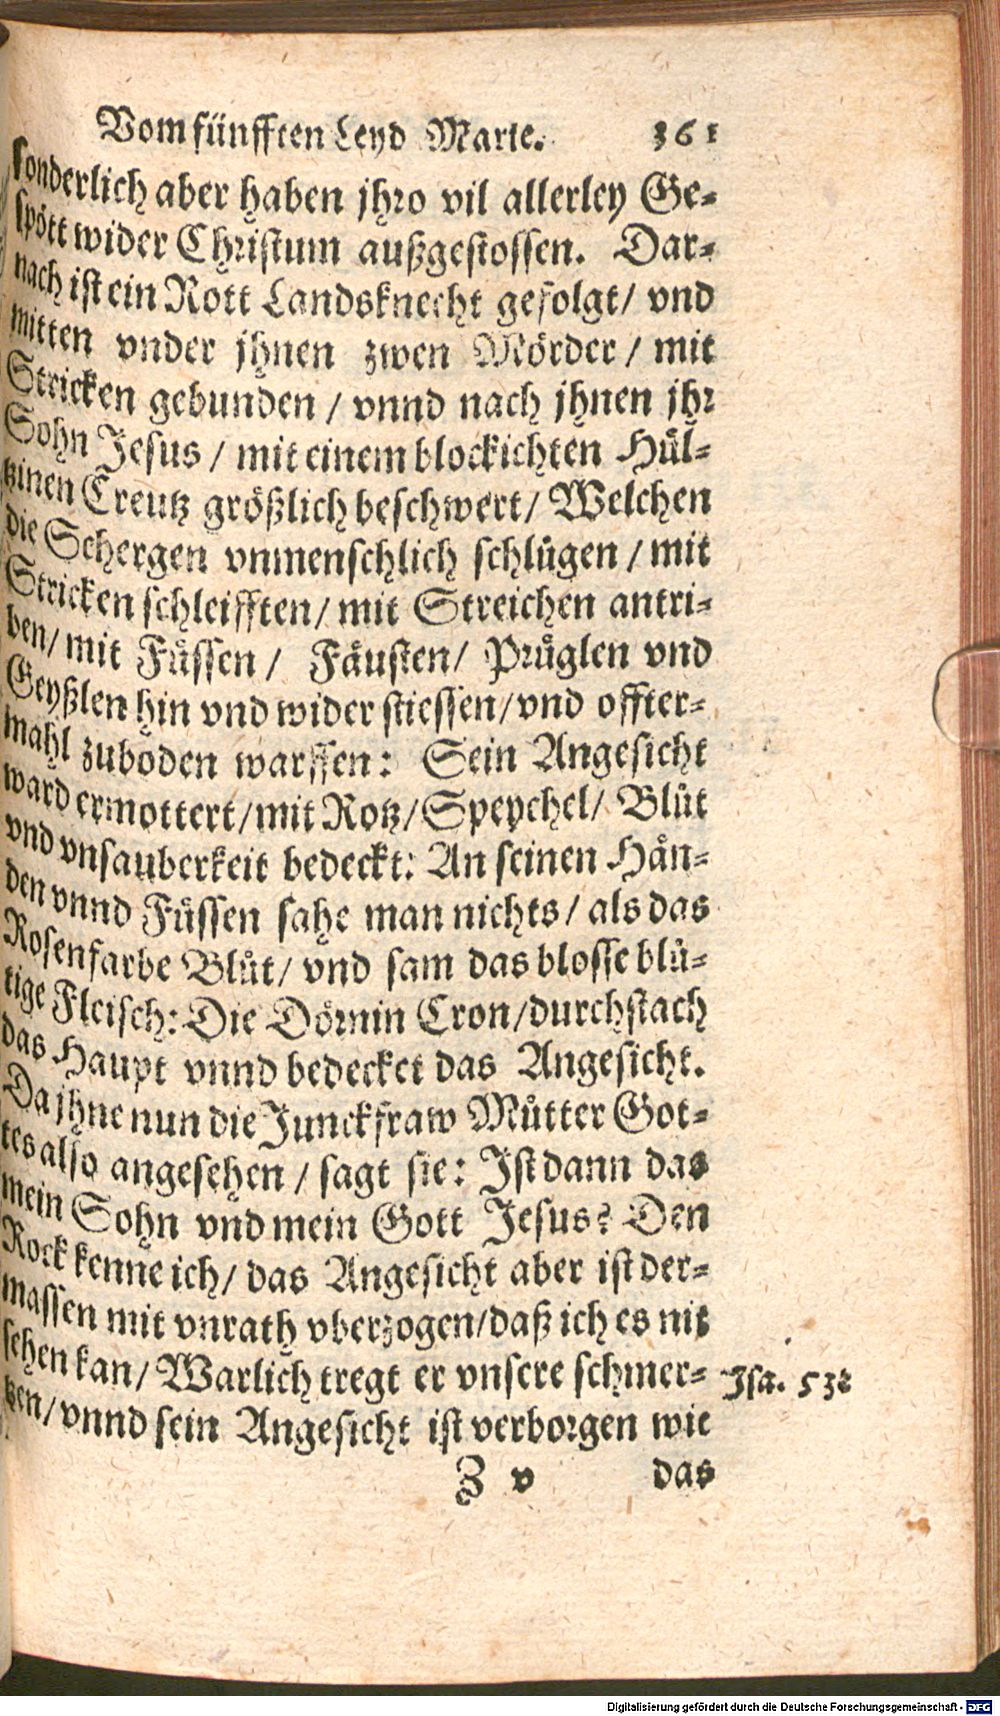 Vom fünfften Leyd Marie. 361
sonderlich aber haben jhro vil allerley Ge-
spött wider Christum außgestossen. Dar-
nach ist ein Rott Landsknecht gefolgt/ vnd
mitten vnder jhnen zwen Mörder / mit
Stricken gebunden / vnnd nach jhnen jhr
Sohn Jesus / mit einem blockichten Hül-
tzinen Creutz größlich beschwert/ Welchen
die Schergen vnmenschlich schlůgen / mit
Stricken schleifften/ mit Streichen antri-
ben/ mit Fůssen / Fäusten/ Průglen vnd
Geyßlen hin vnd wider stiessen/ vnd offter-
mahl zuboden warffen: Sein Angesicht
ward ermottert/mit Rotz/ Speychel/ Blůt
vnd vnsauberkeit bedeckt: An seinen Hän-
den vnnd Fůssen sahe man nichts/ als das
Rosenfarbe Blůt/ vnd sam das blosse blů-
tige Fleisch: Die Dörnin Cron/durchstach
das Haupt vnnd bedecket das Angesicht.
Da jhne nun die Junckfraw Můtter Got-
tes also angesehen / sagt sie: Ist dann das
mein Sohn vnd mein Gott Jesus? Den
Rock kenne ich/ das Angesicht aber ist der-
massen mit vnrath vberzogen/daß ich es nit
sehen kan/ Warlich tregt er vnsere schmer-
Isa. 53
tzen/ vnnd sein Angesicht ist verborgen wie
Z v das
Digitalisierung gefördert durch die Deutsche Forschungsgemeinschaft - DFG